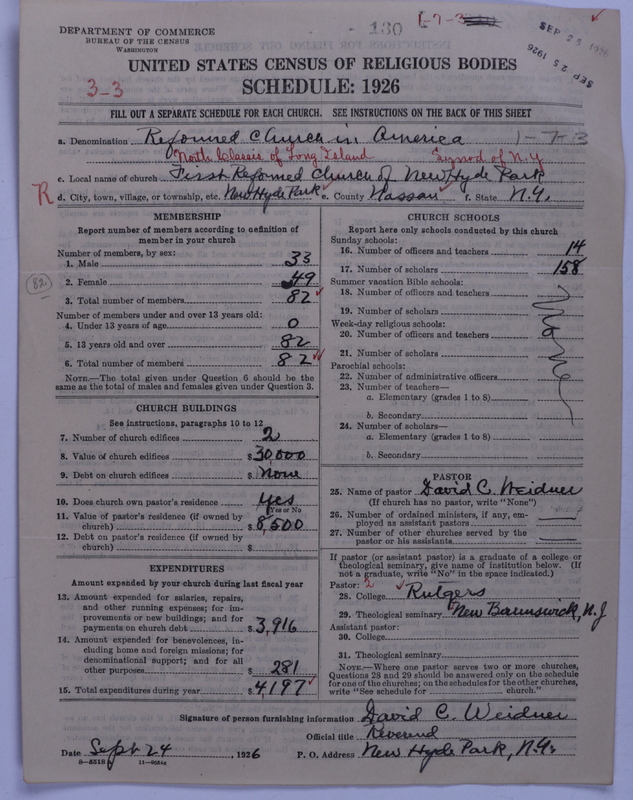 DEPARTMENT OF COMMERCE
BUREAU OF THE CENSUS
WASHINGTON
130
1-7-3
SEP 23 1926
SEP 25 1926
UNITED STATES CENSUS OF RELIGIOUS BODIES
3-3
SCHEDULE: 1926
FILL OUT A SEPARATE SCHEDULE FOR EACH CHURCH. SEE INSTRUCTIONS ON THE BACK OF THIS SHEET
a. Denomination Reformed Church in America 1-7-3
North Classis of Long Island Synod of N.Y.
c. Local name of church First Reformed Church of New Hyde Park
R d. City, town, village, or township, etc. New Hyde Park e. County Nassau f. State N.Y.
MEMBERSHIP
Report number of members according to definition of
member in your church
Number of members, by sex:
1. Male 33
2. Female 49
82
3. Total number of members 82
Number of members under and over 13 years old:
4. Under 13 years of age 0
5. 13 years old and over 82
6. Total number of members 82
NOTE.—The total given under Question 6 should be
same as the total of males and females given under Question 3.
CHURCH BUILDINGS
See instructions, paragraphs 10 to 12
7. Number of church edifices 2
8. Value of church edifices $30,000
9. Debt on church edifices $ None
10. Does church own pastor's residence Yes
(Yes or No)
11. Value of pastor's residence (if owned by
church) $8,500
12. Debt on pastor's residence (if owned by
church) $
EXPENDITURES
Amount expended by your church during last fiscal year
13. Amount expended for salaries, repairs,
and other running expenses; for im-
provements or new buildings; and for
payments on church debt $3,916
14. Amount expended for benevolences, in-
cluding home and foreign missions; for
denominational support; and for all
other purposes $ 281
15. Total expenditures during year $4,197
CHURCH SCHOOLS
Report here only schools conducted by this church
Sunday schools:
16. Number of officers and teachers 14
17. Number of scholars 158
Summer vacation Bible schools:
18. Number of officers and teachers
19. Number of scholars
Week-day religious schools:
20. Number of officers and teachers
21. Number of scholars
None
Parochial schools:
22. Number of administrative officers
23. Number of teachers—
a. Elementary (grades 1 to 8)
b. Secondary
24. Number of scholars—
a. Elementary (grades 1 to 8)
b. Secondary
PASTOR
25. Name of pastor David C. Weidner
(If church has no pastor, write "None")
26. Number of ordained ministers, if any, em-
ployed as assistant pastors
27. Number of other churches served by the
pastor or his assistants
If pastor (or assistant pastor) is a graduate of a college or
theological seminary, give name of institution below. (If
not a graduate, write "No" in the space indicated.)
Pastor: 2
28. College Rutgers
29. Theological seminary New Brunswick, N.J
Assistant pastor:
30. College
31. Theological seminary
NOTE.—Where one pastor serves two or more churches,
Questions 28 and 29 should be answered only on the schedule
for one of the churches; on the schedules for the other churches,
write "See schedule for church."
Signature of person furnishing information David C. Weidner
Official title Reverend
Date Sept 24, 1926 P. O. Address New Hyde Park, N.Y.
8-5518 11-9054a